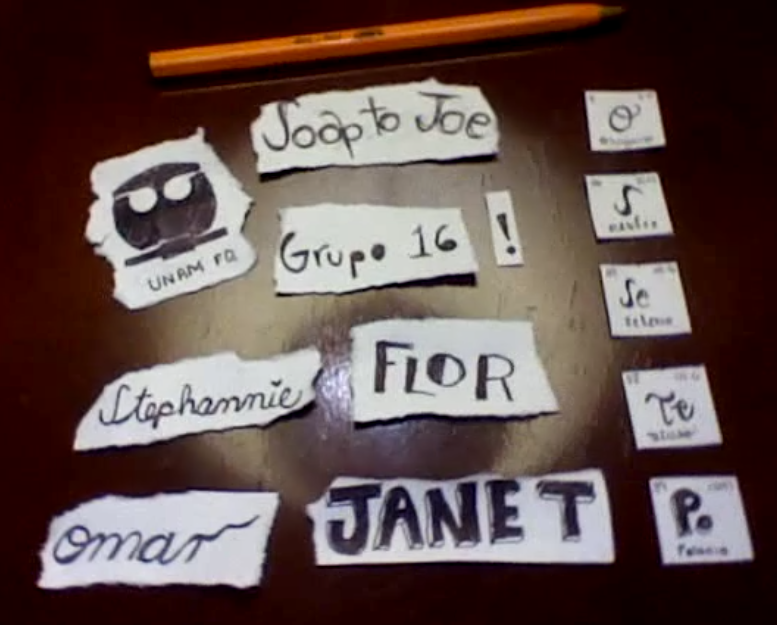 Soap to Joe
UNAM FQ
Grupo 16 !
Stephannie
FLOR
omar
JANET
O
S
Se
Te
Po
Polonio